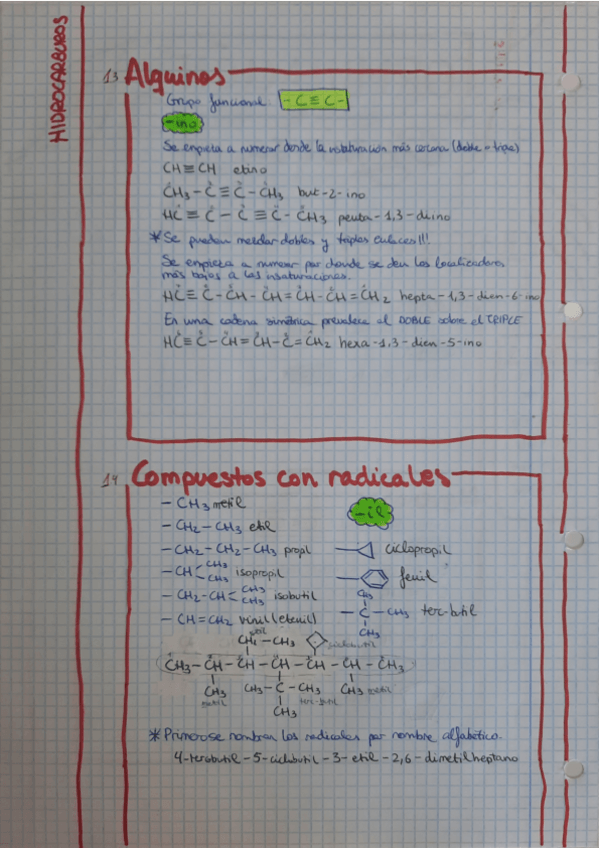 HIDROCARBUROS
13 Alquinos
Grupo funcional: -C≡C-
-ino
Se empieza a numerar donde la instauración más cercana (doble o triple)
CH≡CH etino
CH₃-C≡C-CH₃ but-2-ino
HC≡C-C≡C-CH₃ penta-1,3-diino
*Se pueden mezclar dobles y triples enlaces!!!
Se empieza a numerar por donde se den los localizadores
más bajos a las insaturaciones.
HC≡C-CH-CH=CH-CH=CH₂ hepta-1,3-dien-6-ino
En una cadena simétrica prevalece el DOBLE sobre el TRIPLE
HC≡C-CH=CH-C=CH₂ hexa-1,3-dien-5-ino
14 Compuestos con radicales
-CH₃ metil
-il
-CH₂-CH₃ etil
-CH₂-CH₂-CH₃ propil
ciclopropil
-CH CH₃ CH₃ isopropil
fenil
-CH₂-CH CH₃ CH₃ isobutil
CH₃
-C-CH₃ terc-butil
CH₃
-CH=CH₂ vinil (etenil)
etil
CH₂-CH₃ ciclobutil
CH₃-CH-CH-CH-CH-CH-CH₃
CH₃ CH₃-C-CH₃ CH₃ metil
metil terc-butil
CH₃
*Primero se nombran los radicales por nombre alfabético.
4-tercbutil-5-ciclobutil-3-etil-2,6-dimetilheptano